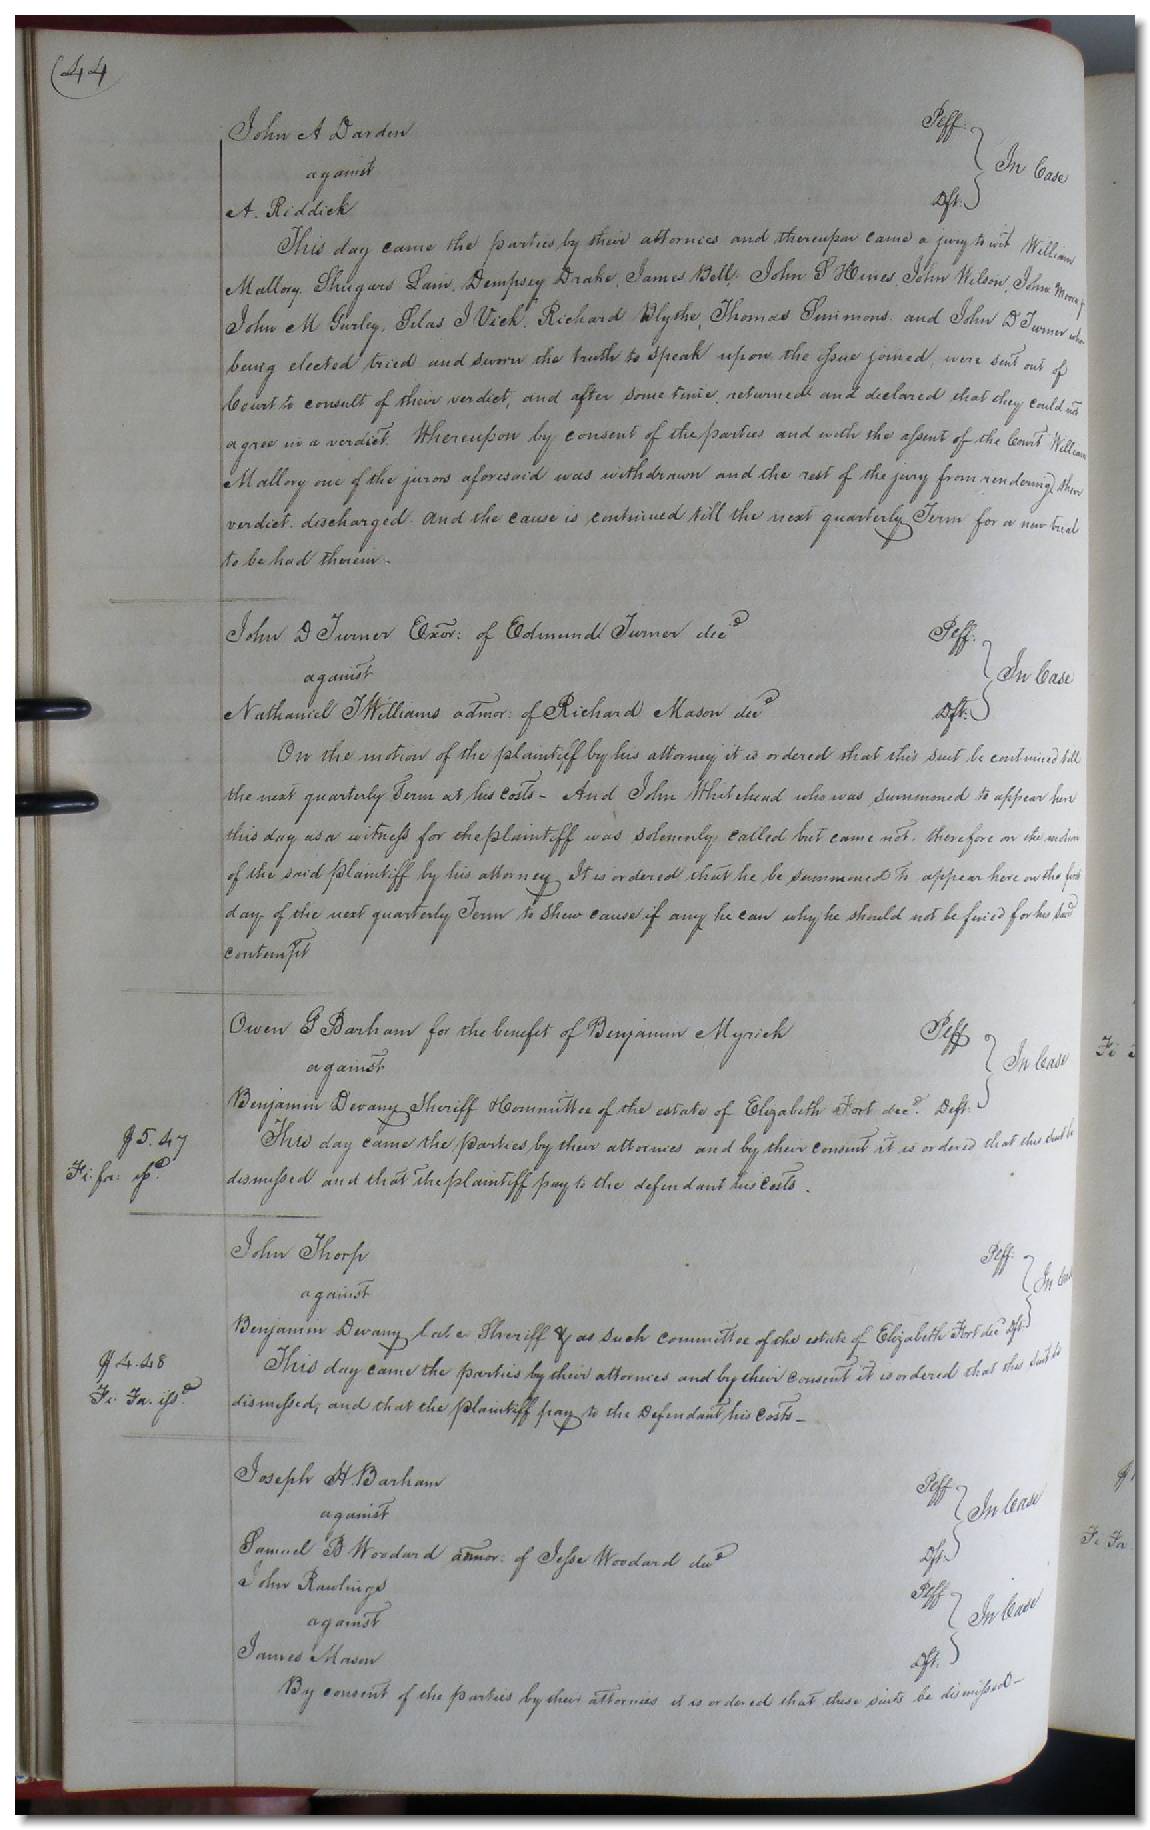 (44
John A Darden Plff.
against In Case
A. Riddick Dft.
This day came the parties by their attornies and thereupon came a jury to wit William
Mallory, Shugars Lain, Dempsey Drake, James Bell, John S Hines, John Wilson, John
John M Gurley, Silas J Vick, Richard Blythe, Thomas Simmons, and John D Turner who
being elected tried and sworn the truth to speak upon the issue joined, were sent out of
Court to consult of their verdict, and after some time, returned and declared that they could not
agree in a verdict. Whereupon by consent of the parties and with the assent of the Court William
Mallory one of the jurors aforesaid was withdrawn and the rest of the jury from rendering their
verdict discharged. And the cause is continued till the next quarterly Term for a new trial
to be had therein.
John D Turner Exor: of Edmund Turner decd Plff.
against In Case
Nathaniel T Williams admor: of Richard Mason decd Dft.
On the motion of the plaintiff by his attorney it is ordered that this suit be continued till
the next quarterly Term at his costs - And John Whitehead who was summoned to appear here
this day as a witness for the plaintiff was solemnly called but came not. therefore on the motion
of the said plaintiff by his attorney It is ordered that he be summoned to appear here on the first
day of the next quarterly Term to shew cause if any he can why he should not be fined for his said
contempt
Owen G Barham for the benefit of Benjamin Myrick Plff
against In Case
Benjamin Devany Sheriff & Committee of the estate of Elizabeth Fort decd. Deft.
This day came the parties by their attornies and by their consent it is ordered that this suit be
$5.47
Fi: fa: issd.
dismissed and that the plaintiff pay to the defendant his costs.
John Thorp Plff.
against In Case
Benjamin Devany late Sheriff & as such committee of the estate of Elizabeth Fort decd Dft.
This day came the parties by their attornies and by their consent it is ordered that this suit be
$4.48
Fi. Fa. issd.
dismissed, and that the plaintiff pay to the Defendant his costs -
Joseph H. Barham Plff
against In Case
Samuel B Woodard admor: of Jesse Woodard decd Dft.
John Rawlings Plff
against In Case
James Mason Dft.
By consent of the parties by their attornies it is ordered that these suits be dismissed -
Fi
Fi Fa